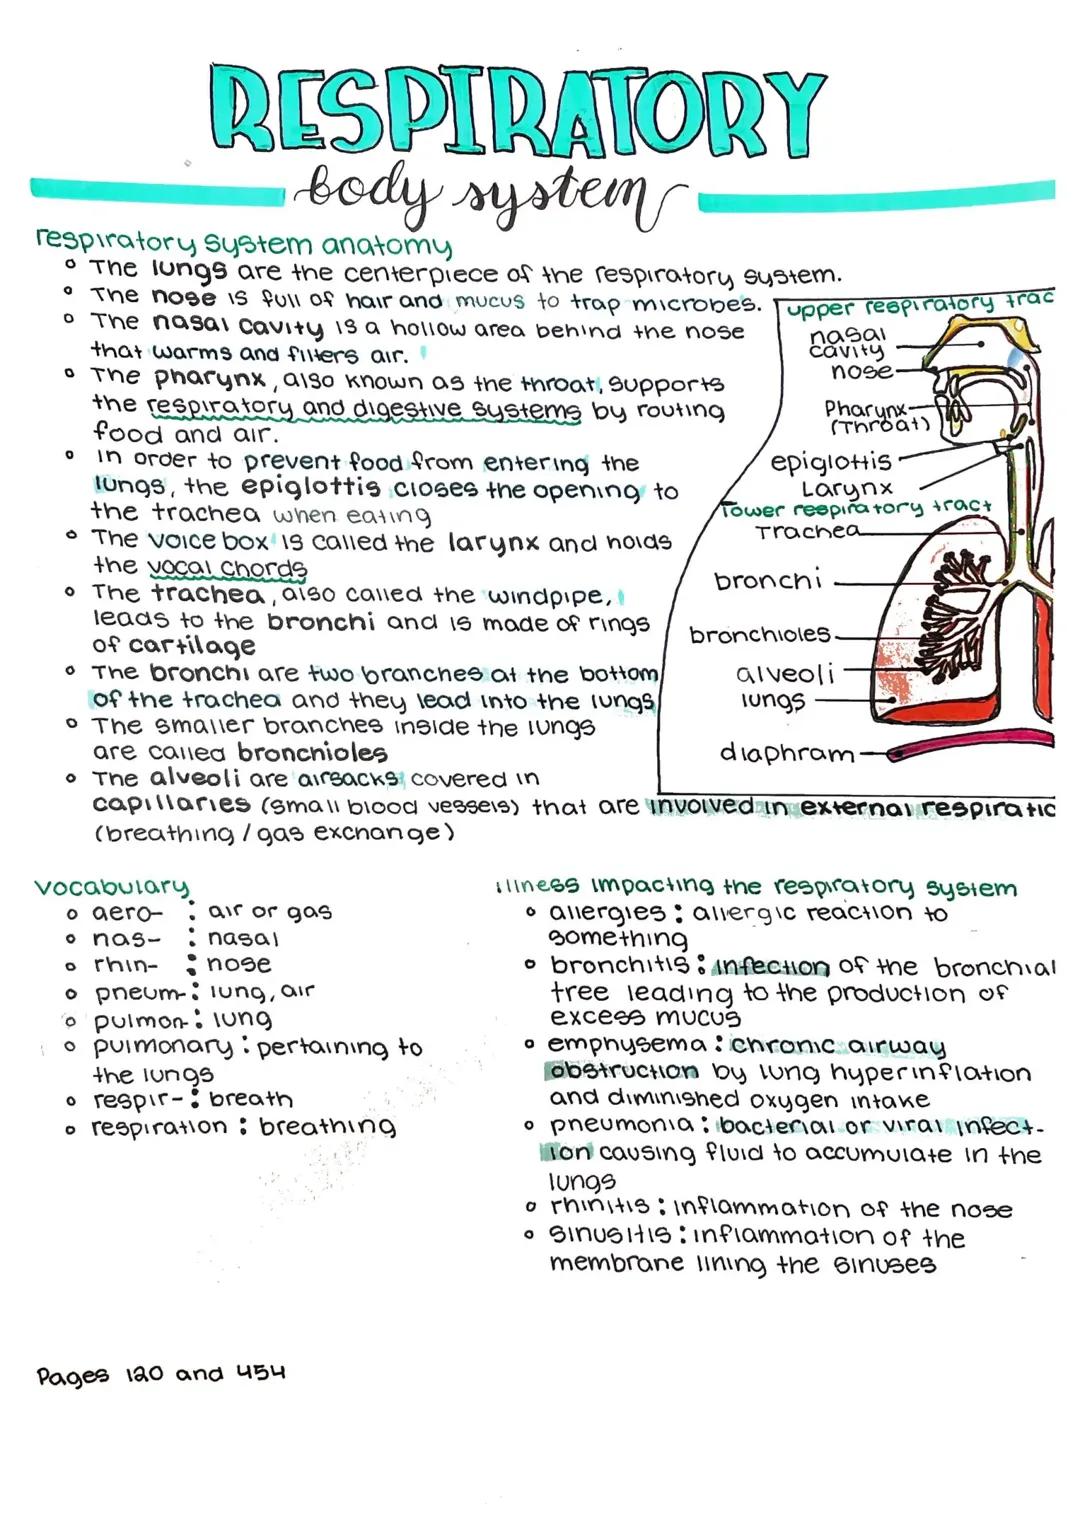 RESPIRATORY
body system
respiratory system anatomy
° The lungs are the centerpiece of the respiratory system.
° The nose is full of hair and mucus to trap microbes.
° The nasal cavity is a hollow area behind the nose
that warms and filters air.
° The pharynx, also known as the throat, supports
the respiratory and digestive systems by routing
food and air.
° In order to prevent food from entering the
lungs, the epiglottis closes the opening to
the trachea when eating
° The voice box is called the larynx and holds
the vocal chords
° The trachea, also called the windpipe,
leads to the bronchi and is made of rings
of cartilage
° The bronchi are two branches at the bottom
of the trachea and they lead into the lungs
° The smaller branches inside the lungs
are called bronchioles
° The alveoli are airsacks covered in
capillaries (small blood vessels) that are involved in external respiratio
(breathing / gas exchange)
upper respiratory trac
nasal
cavity
nose
Pharynx
(Throat)
epiglottis
Larynx
lower respiratory tract
Trachea
bronchi
bronchioles
alveoli
lungs
diaphram
vocabulary
° aero- : air or gas
° nas- : nasal
° rhin- : nose
° pneum- : lung, air
° pulmon- : lung
° pulmonary : pertaining to
the lungs
° respir- : breath
° respiration : breathing
illness impacting the respiratory system
° allergies : allergic reaction to
something
° bronchitis : infection of the bronchial
tree leading to the production of
excess mucus
° emphysema : chronic airway
obstruction by lung hyperinflation
and diminished oxygen intake
° pneumonia : bacterial or viral infect-
ion causing fluid to accumulate in the
lungs
° rhinitis : inflammation of the nose
° sinusitis : inflammation of the
membrane lining the sinuses
Pages 120 and 454